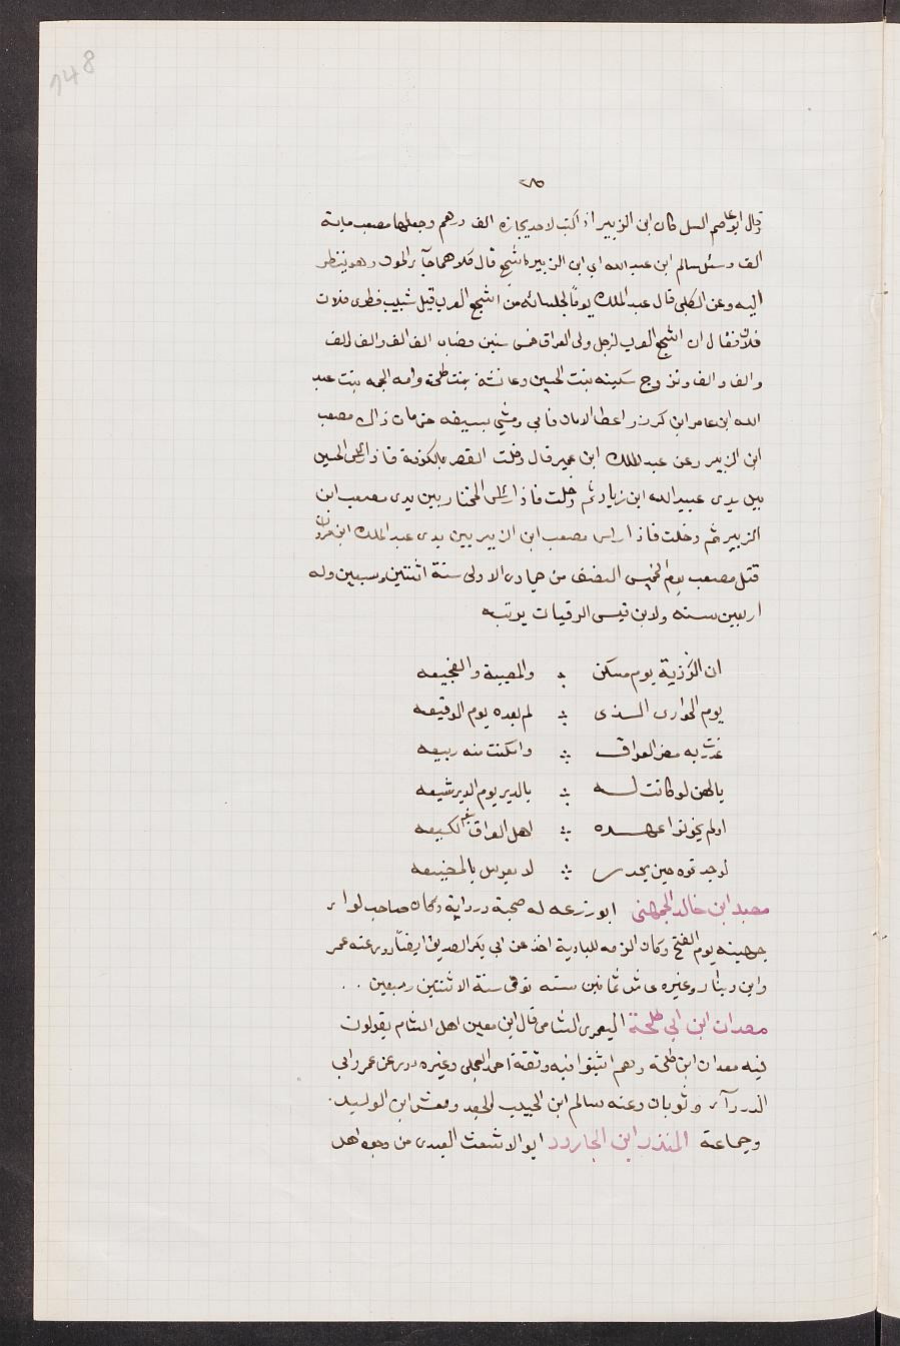 148
٧٥
وقال ابو عاصم النبيل كان ابن الزبير اذا كتب لاحد بجايزه الف درهم وجعلها مصعب ماية
الف وسئل سالم ابن عبد الله اي ابن الزبير اشجع قال كلاهما جآ الموت وهو ينظر
اليه وعن الكلبى قال عبد الملك يوماً لجلسائه من اشجع العرب قيل شبيب قطرى فلان
فلان فقال ان اشجع العرب لرجل ولى العراق خمس سنين فضاب الف الف والف الف
والف والف وتزوج سكينه بنت الحسين وعائشة بنت طلحة وامه الجمه بنت عبد
الله ابن عامر ابن كرز واعطا الامان فابى ومشى بسيفه حتى مات ذاك مصعب
ابن الزبير وعن عبد الملك ابن عمير قال دخلت القصر بالكوفة فاذا راس الحسين
بين يدى عبيد الله ابن زياد ثم دخلت فاذا راس المختار بين يدى مصعب ابن
الزبير ثم دخلت فاذا راس مصعب ابن الزبير بين يدى عبد الملك ابن مروان
قتل مصعب يوم الخميس النصف من جمادى الاولى سنة اثنتين وسبعين وله
اربعين سنه ولابن قيس الرقيات يرثيه
ان الرزية يوم مسكن ؞ والمصيبة والفجيعه
يوم الحوارى الذى ؞ لم يعده يوم الوقيعه
غدرت به مضر العراق ؞ وامكنت منه ربيعه
يالهف لو كانت له ؞ بالدير يوم الدير شيعه
اولم يخونوا عهده ؞ اهل العراق بنو اللكيعه
لوجدتموه حين يحدر ؞ لا يعرس بالمضيعه
معبد ابن خالد الجهنى ابو زرعه له صحبة ورواية وكان صاحب لوا
جهينه يوم الفتح وكان الزمه للبادية اخذ عن ابى بكر الصديق ايضاً روى عنه عمر
وابن دينار وغيره عاش ثمانين سنه توفى سنة الاثنتين وسبعين ..
معدان ابن ابى طلحة اليعمرى الشامى قال ابن معين اهل الشام يقولون
فيه معدان ابن طلحة وهم اثبتوا فيه وثقة احمد العجلى وغيره روى عن عمر وابى
الدردآء وثوبان وعنه سالم ابن الجعد ومعش ابن الوليد.
وجماعة المنذر ابن الجارود ابو الاشعث العبدى من وجوه اهل